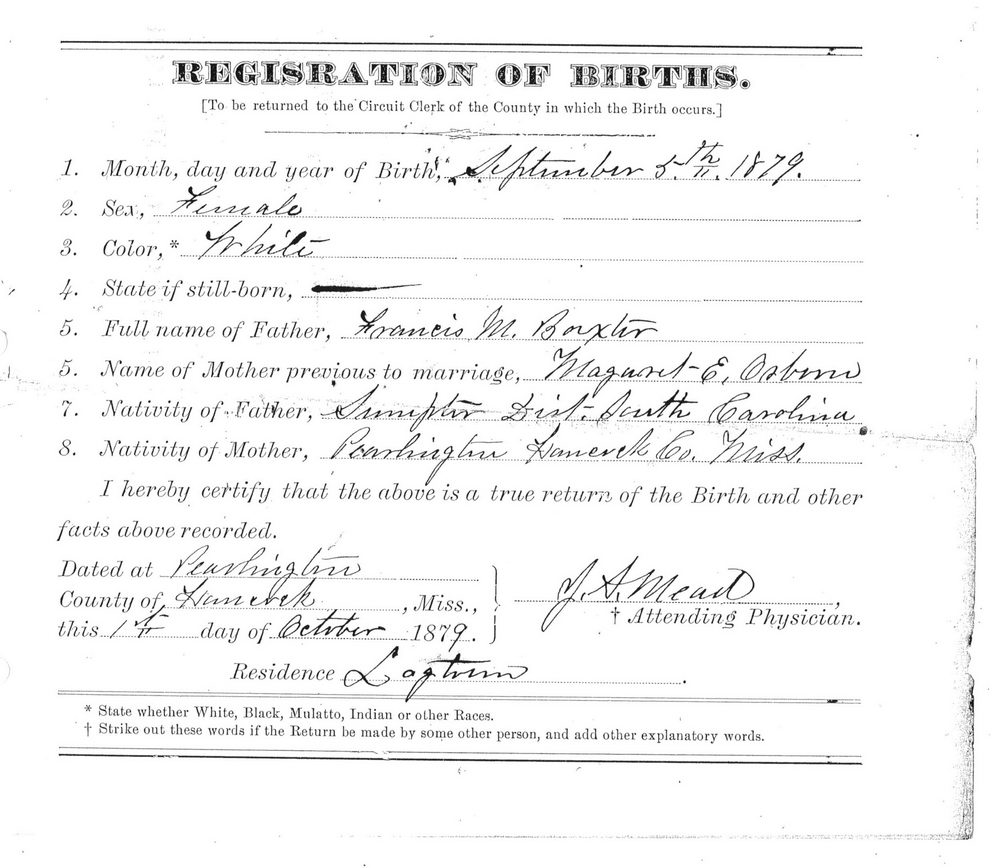 REGISRATION OF BIRTHS.
[To be returned to the Circuit Clerk of the County in which the Birth occurs.]
1. Month, day and year of Birth, September 5th. 1879.
2. Sex, Female
3. Color,* White
4. State if still-born,
5. Full name of Father, Francis M. Baxter
5. Name of Mother previous to marriage, Magaret E. Osborn
7. Nativity of Father, Sumpter Dist. South Carolina
8. Nativity of Mother, Pearlington Hancock Co. Miss.
I hereby certify that the above is a true return of the Birth and other
facts above recorded.
Dated at Pearlington
County of Hancock, Miss.,
this 1st day of October 1879.
J. S. Mead,
† Attending Physician.
Residence Logtown.
* State whether White, Black, Mulatto, Indian or other Races.
† Strike out these words if the Return be made by some other person, and add other explanatory words.